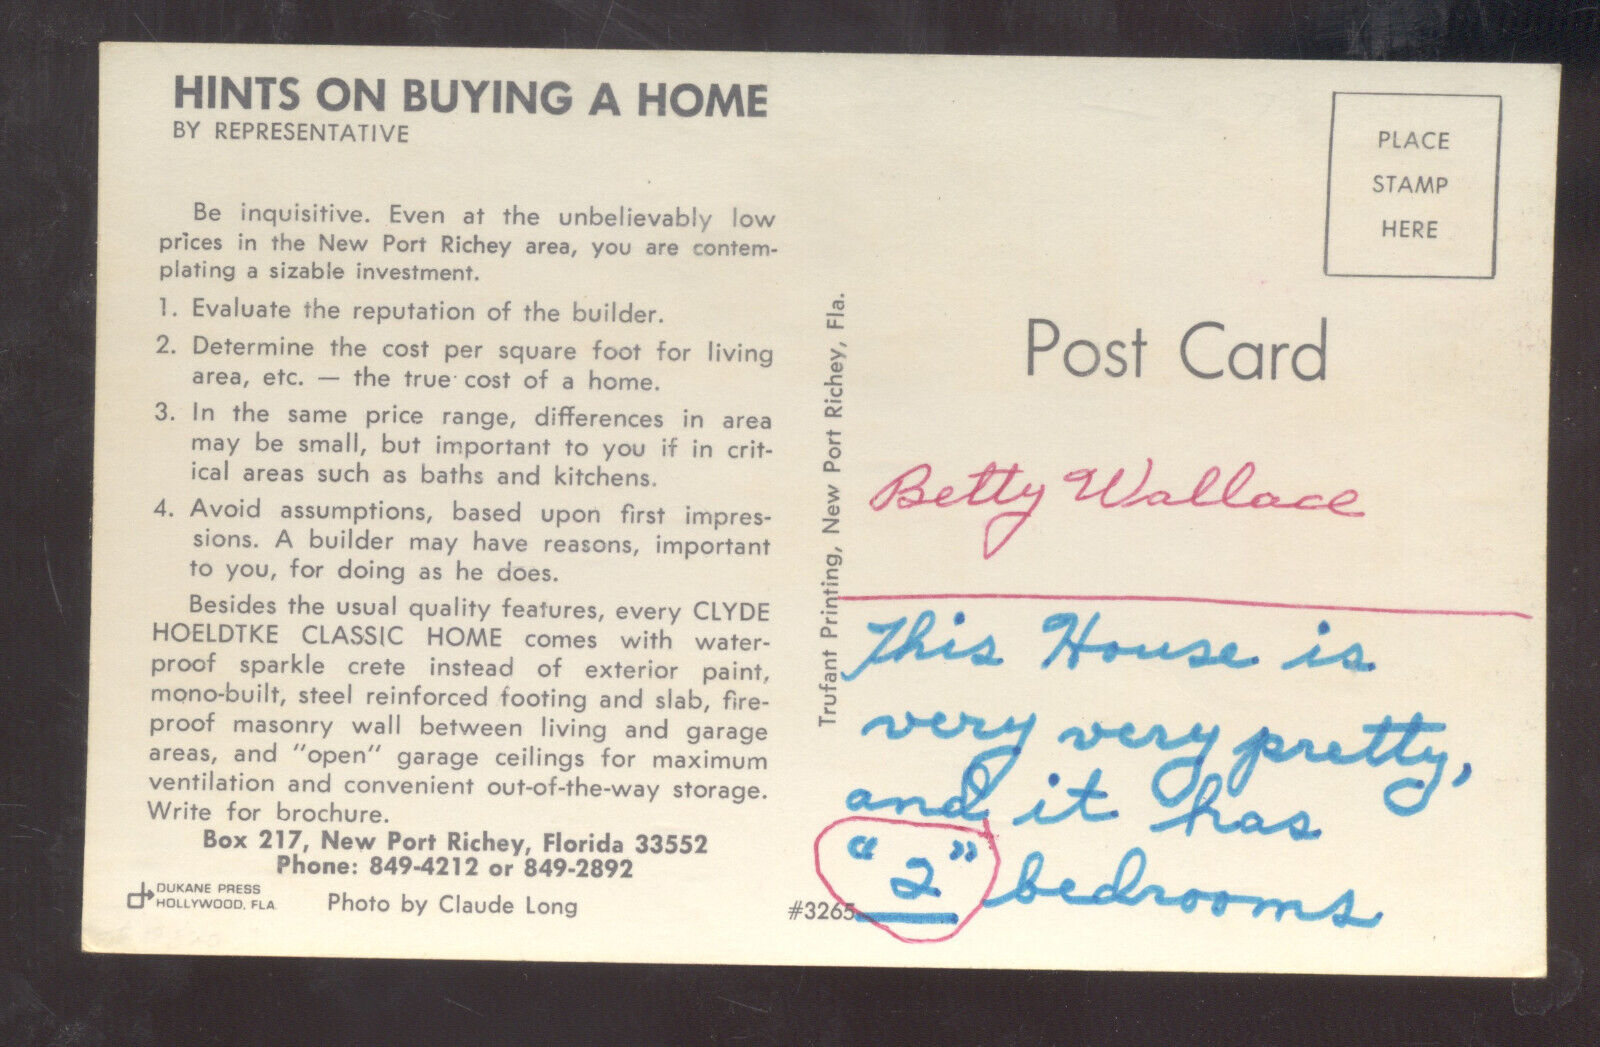 HINTS ON BUYING A HOME
BY REPRESENTATIVE
Be inquisitive. Even at the unbelievably low
prices in the New Port Richey area, you are contem-
plating a sizable investment.
1. Evaluate the reputation of the builder.
2. Determine the cost per square foot for living
area, etc. — the true cost of a home.
3. In the same price range, differences in area
may be small, but important to you if in crit-
ical areas such as baths and kitchens.
4. Avoid assumptions, based upon first impres-
sions. A builder may have reasons, important
to you, for doing as he does.
Besides the usual quality features, every CLYDE
HOELDTKE CLASSIC HOME comes with water-
proof sparkle crete instead of exterior paint,
mono-built, steel reinforced footing and slab, fire-
proof masonry wall between living and garage
areas, and "open" garage ceilings for maximum
ventilation and convenient out-of-the-way storage.
Write for brochure.
Box 217, New Port Richey, Florida 33552
Phone: 849-4212 or 849-2892
DUKANE PRESS
HOLLYWOOD, FLA.
Photo by Claude Long
#3265
Trufant Printing, New Port Richey, Fla.
PLACE
STAMP
HERE
Post Card
Betty Wallace
This House is
very very pretty,
and it has
"2" bedrooms